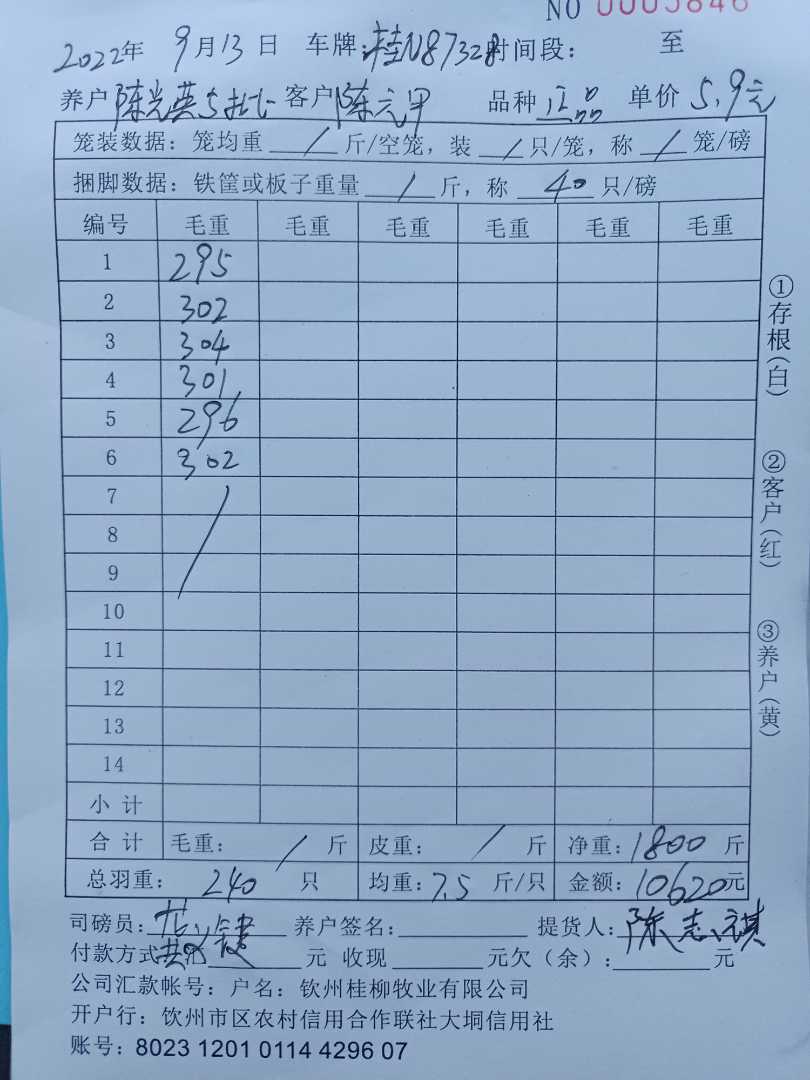 NO 0005846
2022年 9月13日 车牌:桂N87328 时间段: 至
养户 陈光英5批 客户 陈元甲 品种 正品 单价 5.9元
笼装数据: 笼均重 / 斤/空笼, 装 / 只/笼, 称 / 笼/磅
捆脚数据: 铁筐或板子重量 / 斤, 称 40 只/磅
编号 毛重 毛重 毛重 毛重 毛重 毛重
1 295
2 302
3 304
4 301
5 296
6 302
7 /
8
9
10
11
12
13
14
小计
合计 毛重: / 斤 皮重: / 斤 净重: 1800 斤
总羽重: 240 只 均重: 7.5 斤/只 金额: 10620元
司磅员: 养户签名: 提货人: 陈志祺
付款方式 元 收现 元欠(余): 元
公司汇款帐号: 户名: 钦州桂柳牧业有限公司
开户行: 钦州市区农村信用合作联社大垌信用社
账号: 8023 1201 0114 4296 07
①存根(白)
②客户(红)
③养户(黄)